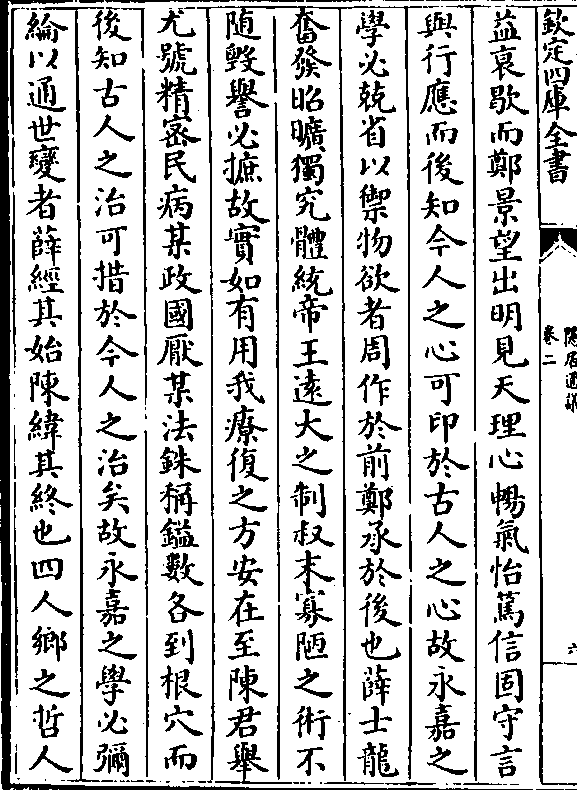 欽定四庫全書
隱居通議
卷二
六
益衰歇而鄭景望出明見天理心暢氣怡篤信固守言
與行應而後知今人之心可印於古人之心故永嘉之
學必兢省以禦物欲者周作於前鄭承於後也薛士龍
奮發昭曠獨究體統帝王逺大之制叔末寡陋之術不
随毀譽必摭故實如有用我療復之方安在至陳君舉
尤號精宻民病某政國厭某法銖稱鎰數各到根穴而
後知古人之治可措於今人之治矣故永嘉之學必彌
綸以通世變者薛經其始陳緯其終也四人鄉之哲人